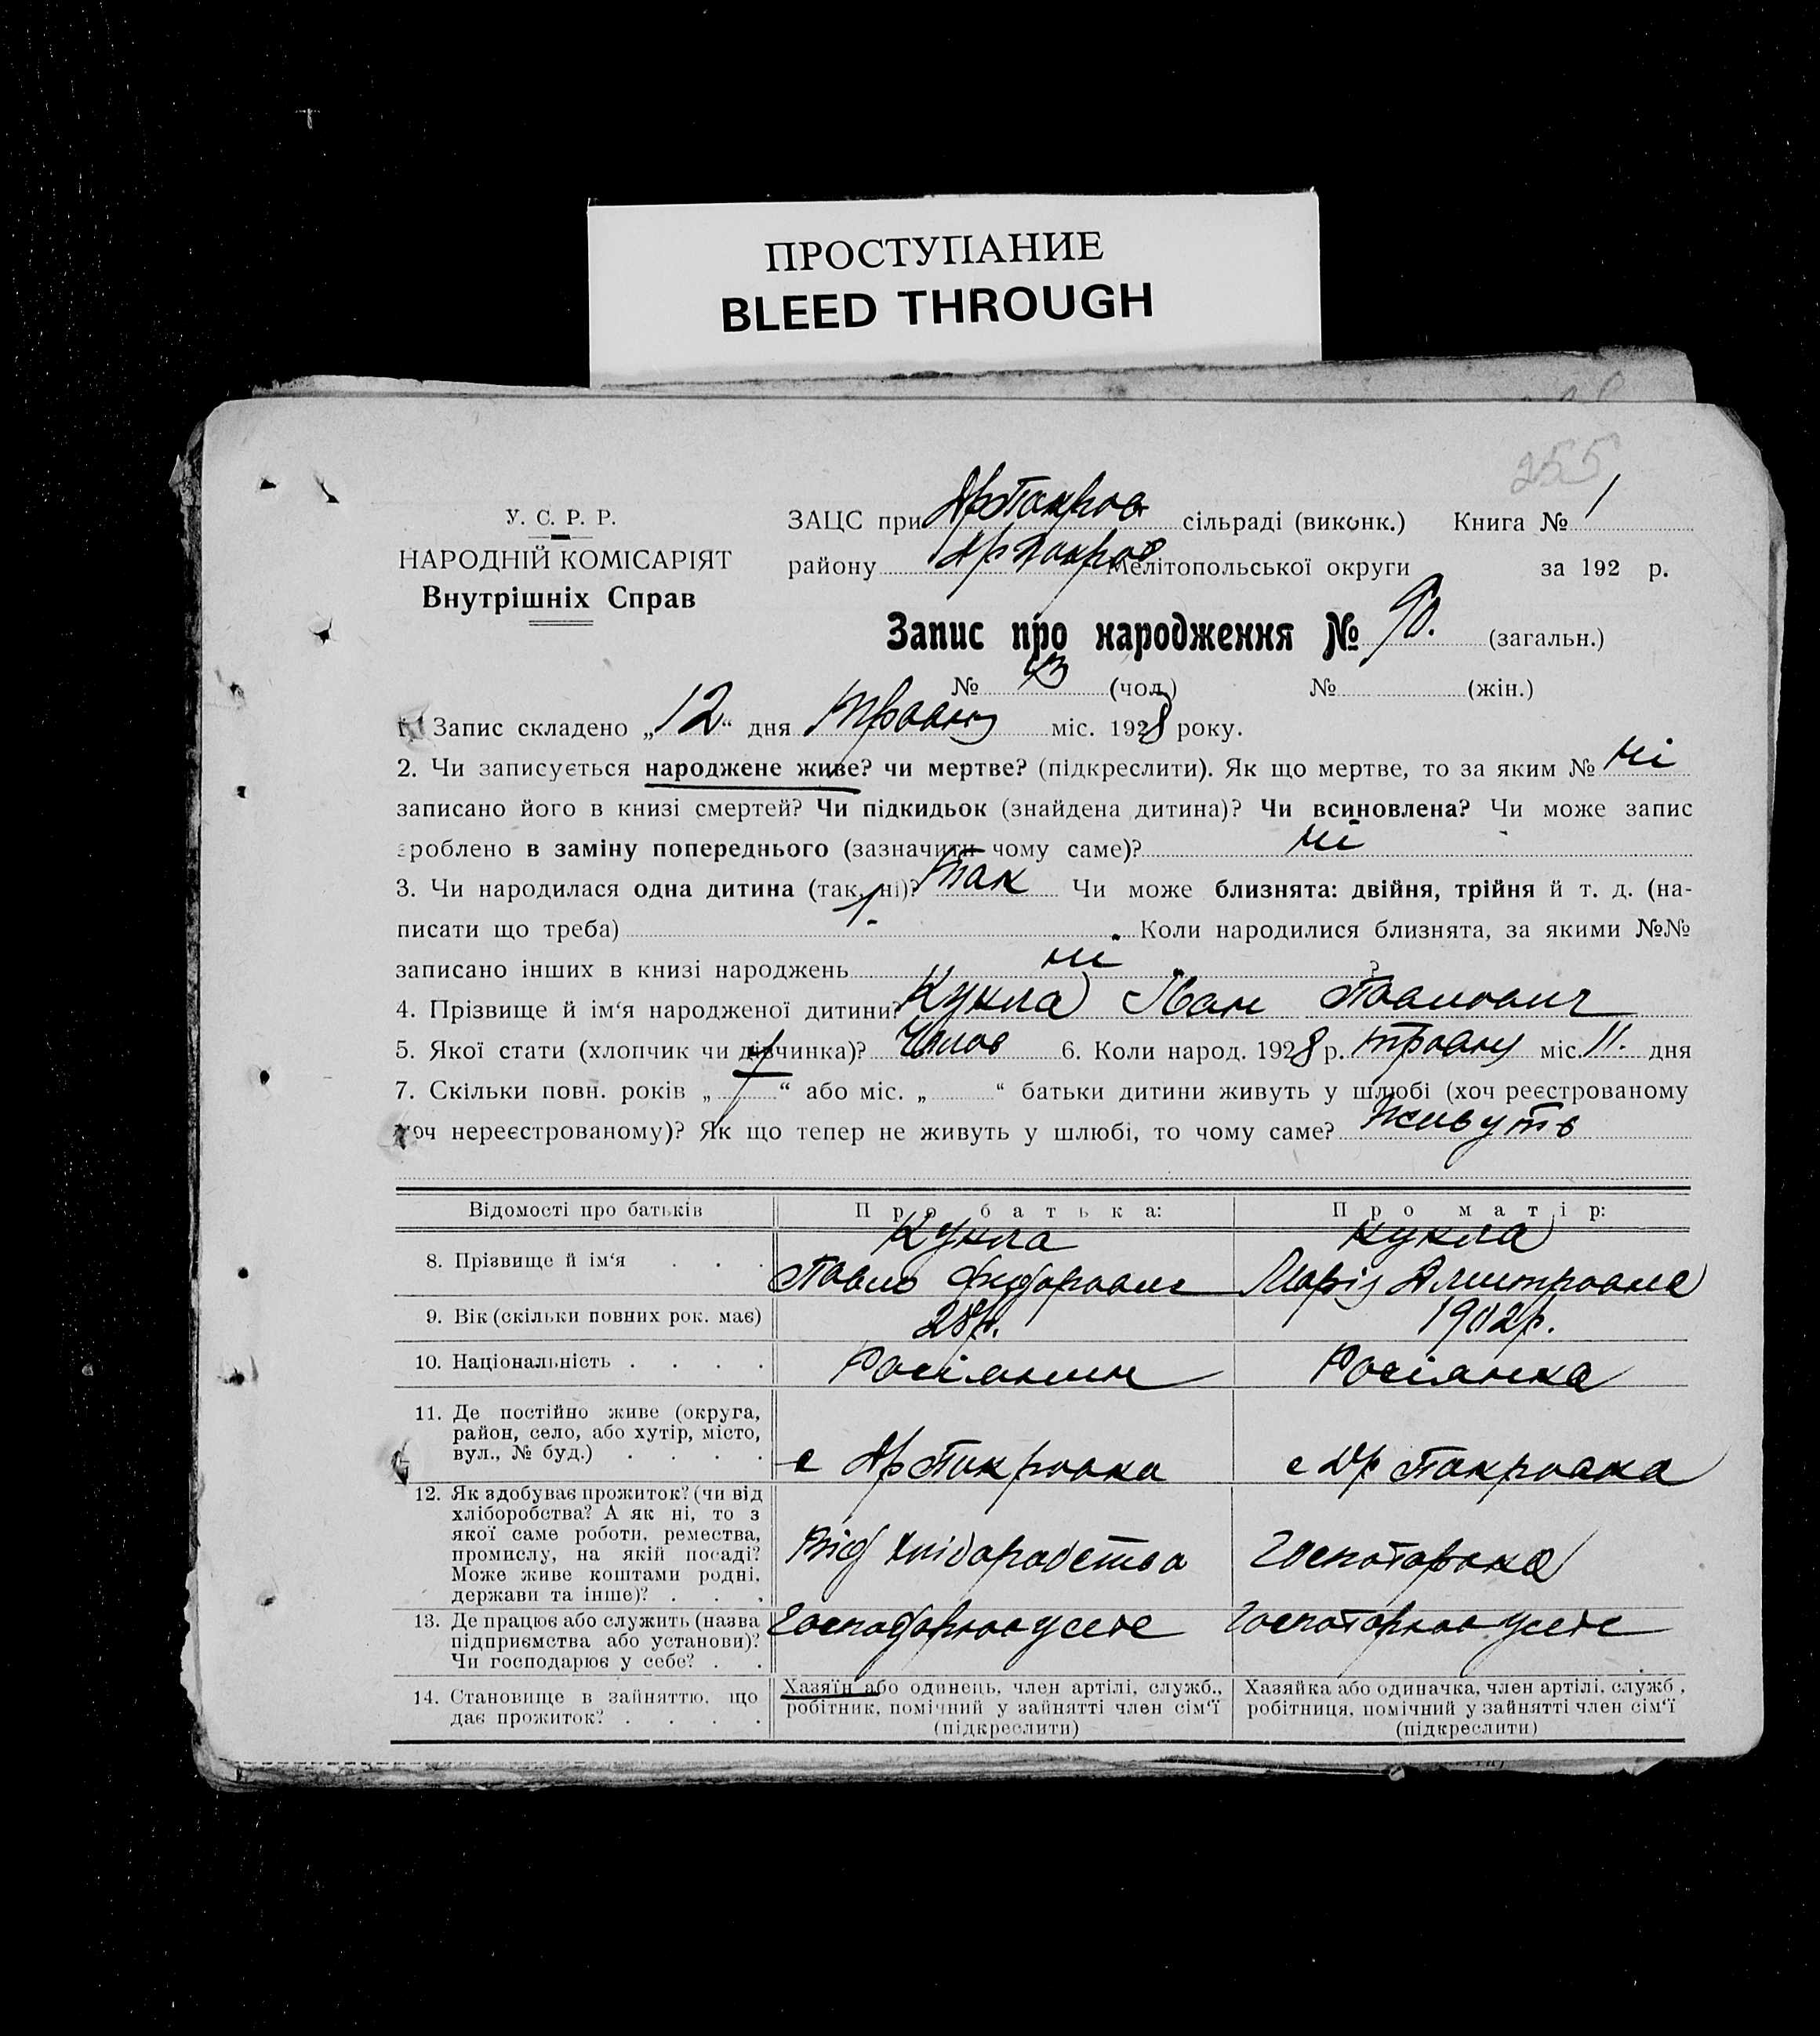 ПРОСТУПАНИЕ
BLEED THROUGH
255
У. С. Р. Р.
НАРОДНІЙ КОМІСАРІЯТ
Внутрішніх Справ
ЗАЦС при сільраді (виконк.) Книга № 1
району Мелітопольської округи за 192 р.
Запис про народження № 90. (загальн.)
№ (чол.) № (жін.)
Запис складено „12“ дня травня міс. 1928 року.
2. Чи записується народжене живе? чи мертве? (підкреслити). Як що мертве, то за яким № ні
записано його в книзі смертей? Чи підкидьок (знайдена дитина)? Чи всиновлена? Чи може запис
зроблено в заміну попереднього (зазначити чому саме)? ні
3. Чи народилася одна дитина (так, ні)? так Чи може близнята: двійня, трійня й т. д. (на-
писати що треба) Коли народилися близнята, за якими №№
записано інших в книзі народжень ні ?
4. Прізвище й ім‘я народженої дитини? Кукла Іван Павлович
5. Якої стати (хлопчик чи дівчинка)? Чолов 6. Коли народ. 1928 р. травня міс. 11. дня
7. Скільки повн. років „ “ або міс. „ “ батьки дитини живуть у шлюбі (хоч реєстрованому
хоч нереєстрованому)? Як що тепер не живуть у шлюбі, то чому саме? Живуть
Відомості про батьків Про батька: Про матір:
8. Прізвище й ім‘я . . . Кукла Павло Кукла Марія Дмитровна
9. Вік (скільки повних рок. має) 28р. 1902р.
10. Національність . . . . Росіянин Росіянка
11. Де постійно живе (округа,
район, село, або хутір, місто,
вул., № буд.) . . . . с Покровка с Покровка
12. Як здобуває прожиток? (чи від
хліборобства? А як ні, то з
якої саме роботи, ремества,
промислу, на якій посаді?
Може живе коштами родні,
держави та інше)? . . . Від хліборобства Госпотарка
13. Де працює або служить (назва
підприємства або установи)?
Чи господарює у себе? . . Господарює у себе Госпотарює у себе
14. Становище в зайняттю, що
дає прожиток? . . . .
Хазяїн або одинець, член артілі, служб.,
робітник, помічний у зайнятті член сім‘ї
(підкреслити)
Хазяйка або одиначка, член артілі, служб.,
робітниця, помічний у зайнятті член сім‘ї
(підкреслити)